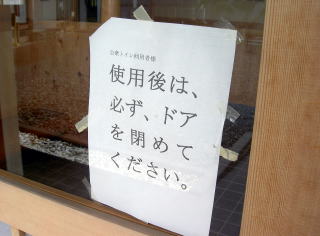 公衆トイレ利用者様
使用後は、
必ず、ドア
を閉めて
ください。